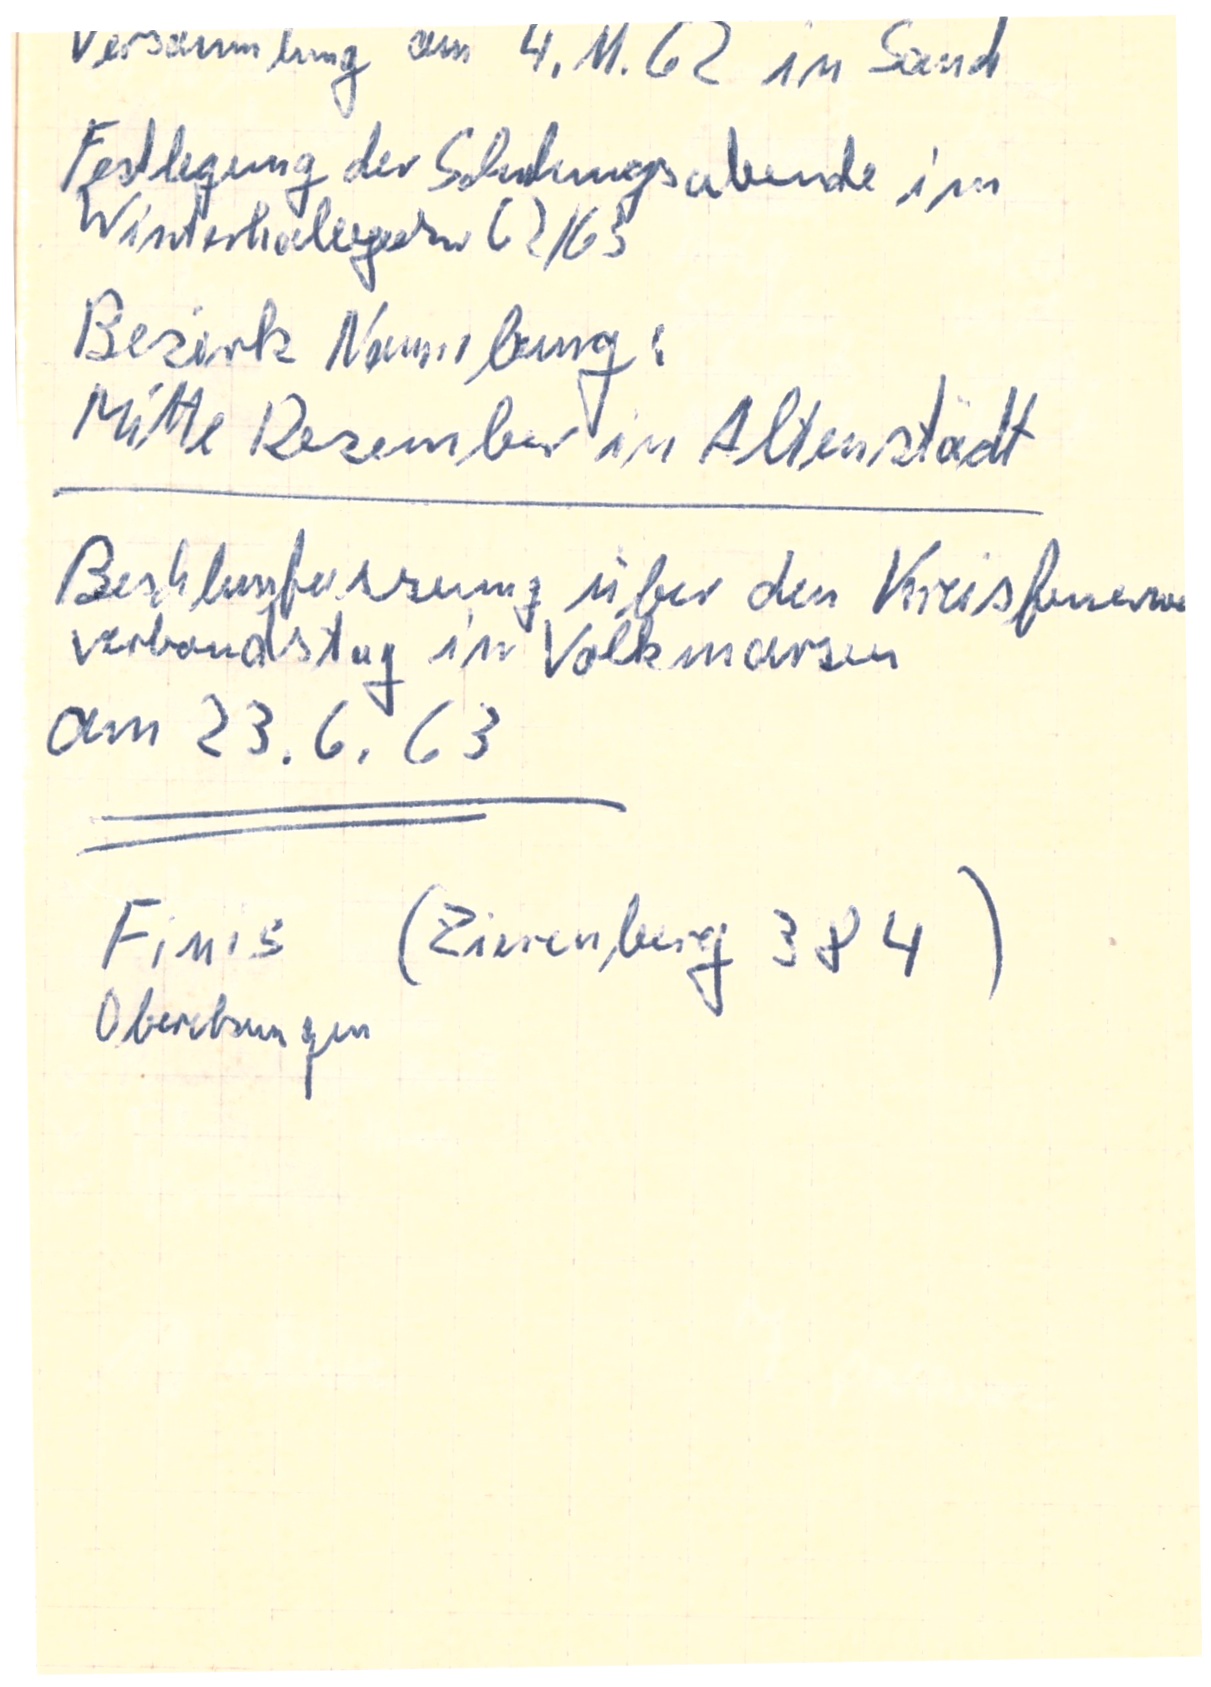 Versammlung am 4.11.62 in Sand
Festlegung der Schulungsabende im
Winterhalbjahr 62/63
Bezirk Naumburg:
Mitte Dezember in Altenstädt
Beschlussfassung über den Kreisfeuerwe
verbandstag in Volkmarsen
am 23.6.63
Finis (Zierenberg 384)
Oberelsungen